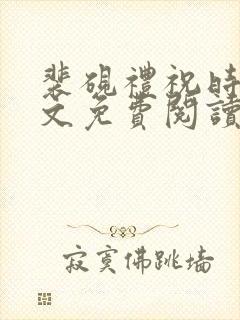 裴硯禮祝時
文免費閱讀
寂寞佛跳墙